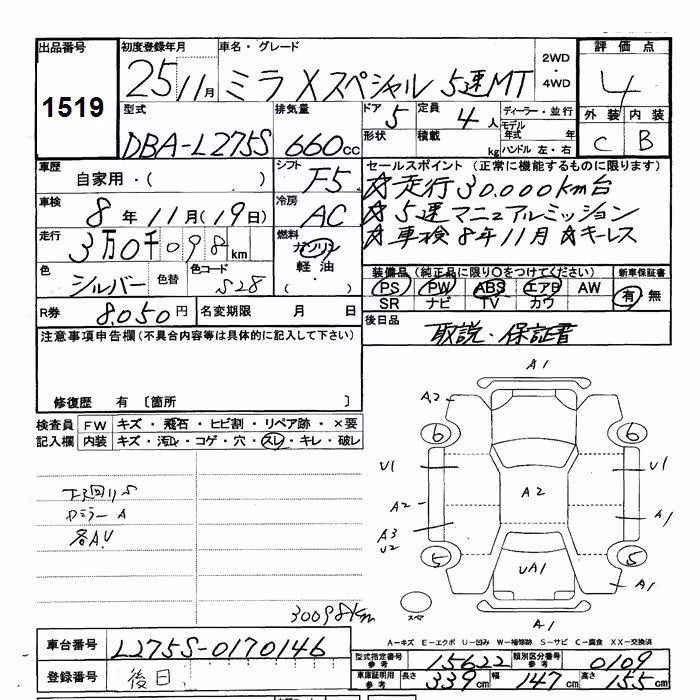 出品番号 初度登録年月 車名・グレード 2WD・4WD 評価点
1519 25/11月 ミラ Xスペシャル 5速MT 4
型式 排気量 ドア 5 定員 4人 ディーラー・並行 外装 内装
DBA-L275S 660cc 形状 積載 kg モデル年式 年 ハンドル 左・右 C B
車歴 自家用・( ) シフト F5 セールスポイント (正常に機能するものに限ります)
☆走行30.000km台
車検 8年11月(19日) 冷房 AC ☆5速マニュアルミッション
走行 3万0千098km 燃料 ガソリン 軽油・( ) ☆車検8年11月 ☆キーレス
色 シルバー 色替 色コード S28 装備品 (純正品に限り○をつけてください) 新車保証書
PS PW ABS エアB AW 有・無
SR ナビ TV カワ
R券 8.050円 名変期限 月 日 後日品 取説・保証書
注意事項申告欄(不具合内容等は具体的に記入して下さい)
修復歴 有 〔箇所 〕
検査員記入欄 FW キズ・飛石・ヒビ割・リペア跡・×要
内装 キズ・汚れ・コゲ・穴・スレ・キレ・破レ
A1
A2
6 6
U1 U1
A2 A2
A3 U2 A1
5 5
UA1 A1
スペア A1
ドアミラー A
各AU
30098km
A-キズ E-エクボ U-凹み W-補修跡 S-サビ C-腐食 XX-交換済
車台番号 L275S-0170146
型式指定番号 参考 15622 類別区分番号 参考 0109
登録番号 後日
車庫証明用 参考 長さ 339cm 幅 147cm 高さ 155cm